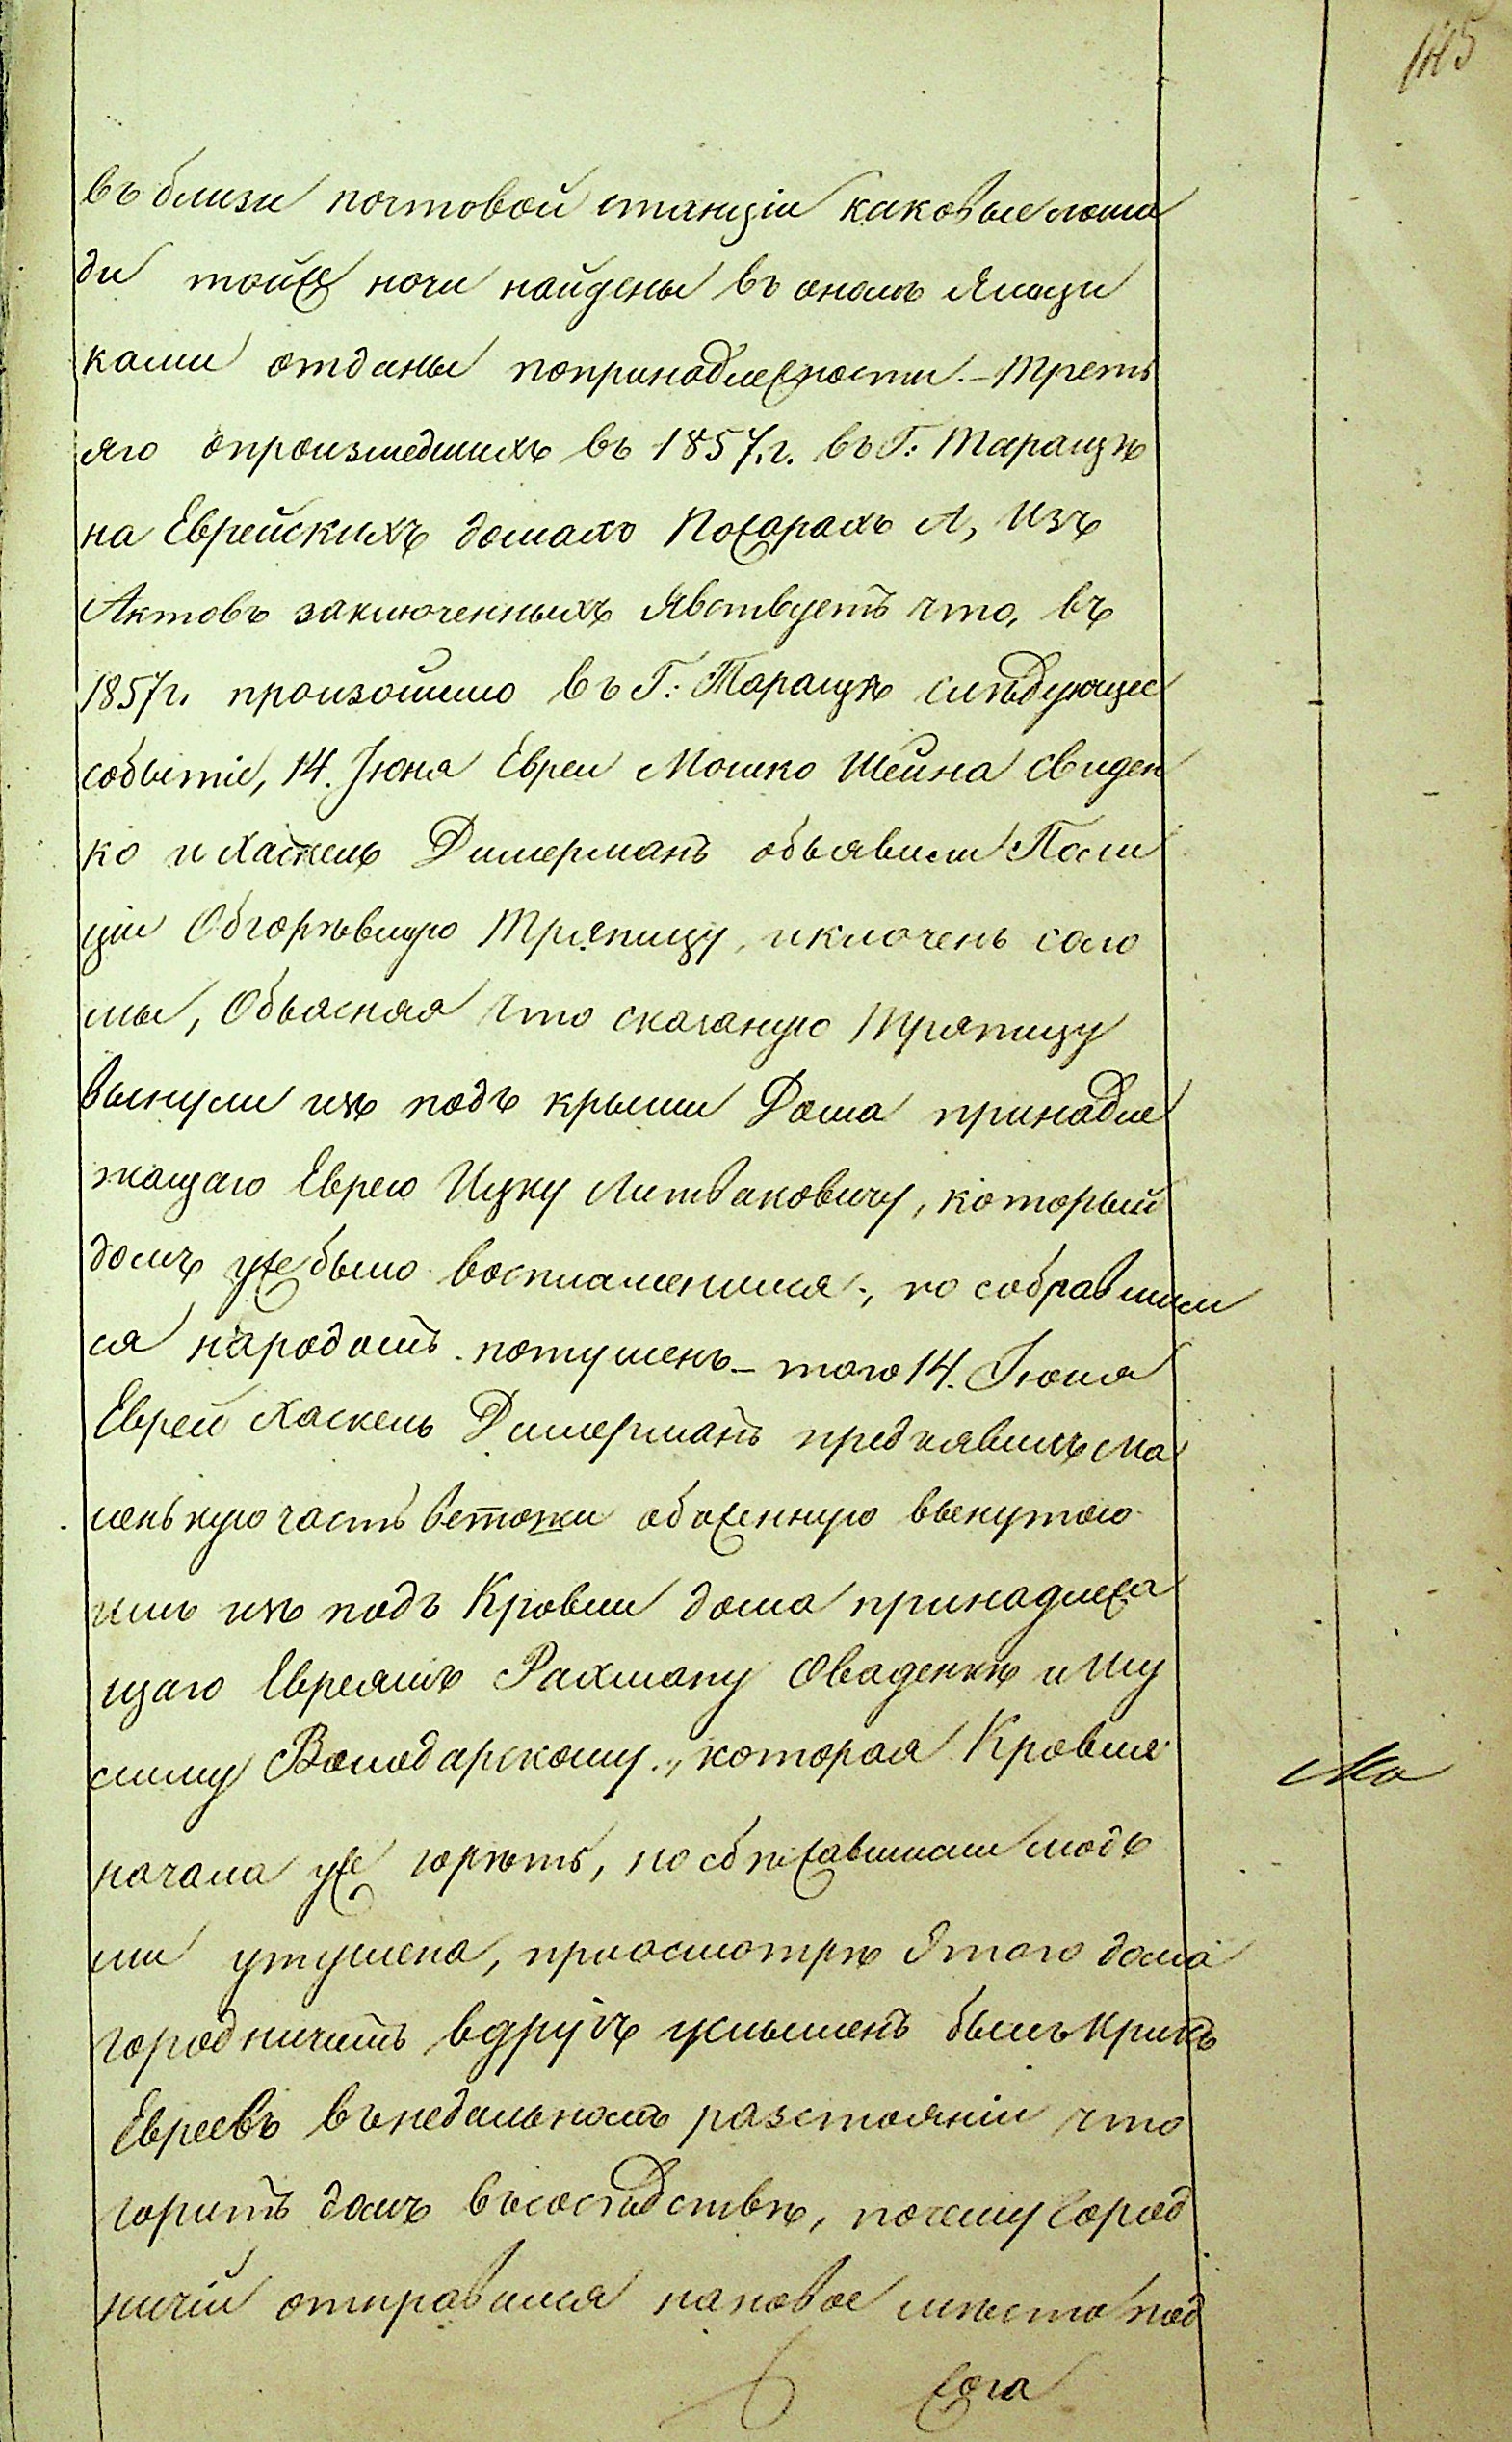 185
въ близи почтовой станціи каковые лоша
ди тойже ночи найдены въ ономъ Ямщи
ками отданы попринадлежности. – Треть
яго опроизшедшихъ въ 1857. г. въ Г: Таращѣ
на Еврейскихъ домахъ Пожарахъ А, Изъ
Актовъ заключенныхъ Явствуетъ что, въ
1857 г. произошло въ Г: Таращѣ слѣдующее
событіе, 14. Іюня Евреи Мошко Шейна Свиден
ко и Хаскель Димерманъ объявили Поли
ціи Обгорѣвшую Тряпицу, иключень соло
мы, Объясняя что сказаную Тряпицу
вынули изъ подъ крыши Дома принадле
жащаго Еврею Ицку Литваковичу, который
домъ уже было воспламенился, но собравшим
ся народомъ потушенъ – того 14. Іюня
Еврей Хаскель Димерманъ предъявилъ Ма
ленькую часть ветоши обоженную вынутою
имъ изъ подъ Кровли дома принадлежа
щаго Евреямъ Рахману Оваденкѣ и Шу
лиму Володарскому, которая Кровля
начала уже горѣть, но сбѣжавшими людь
ми утушена, приосмотрѣ Этого дома
городничимъ вдругъ услышенъ былъ крикъ
Евреевъ въ недальномъ разстояніи что
горитъ домъ въ сосѣдствѣ, почему Город
ничій отправился наповое мѣсто под
жога
Ма